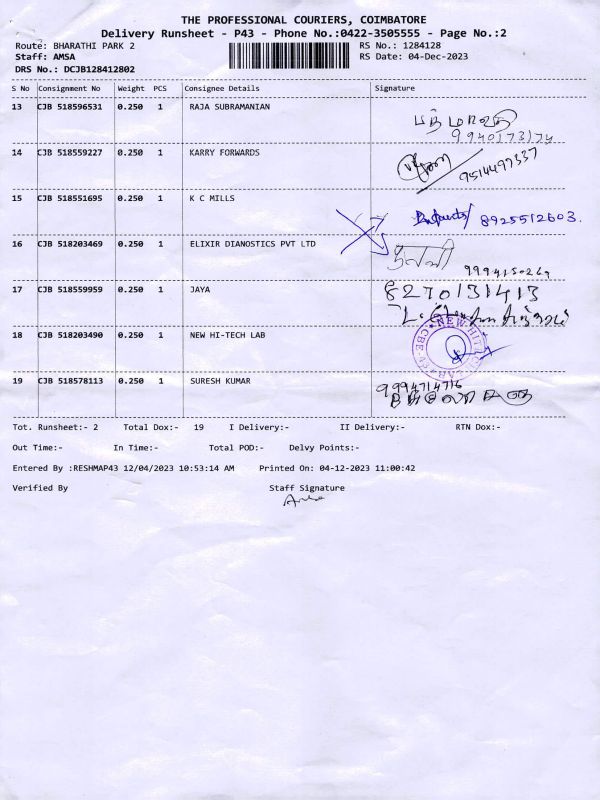 THE PROFESSIONAL COURIERS, COIMBATORE
Delivery Runsheet - P43 - Phone No.:0422-3505555 - Page No.:2
Route: BHARATHI PARK 2 RS No.: 1284128
Staff: AMSA RS Date: 04-Dec-2023
DRS No.: DCJB128412802
S No Consignment No Weight PCS Consignee Details Signature
13 CJB 518596531 0.250 1 RAJA SUBRAMANIAN
பத்மாவதி
9940173174
14 CJB 518559227 0.250 1 KARRY FORWARDS
9514497337
15 CJB 518551695 0.250 1 K C MILLS
8925512603.
16 CJB 518203469 0.250 1 ELIXIR DIANOSTICS PVT LTD
17 CJB 518559959 1 JAYA
0.250
8270131413
18 CJB 518203490 0.250 1 NEW HI-TECH LAB
19 CJB 518578113 0.250 1 SURESH KUMAR
9994714716
Tot. Runsheet:- 2 Total Dox:- 19 I Delivery:- II Delivery:- RTN Dox:-
Out Time:- In Time:- Total POD:- Delvy Points:-
Entered By :RESHMAP43 12/04/2023 10:53:14 AM Printed On: 04-12-2023 11:00:42
Verified By Staff Signature